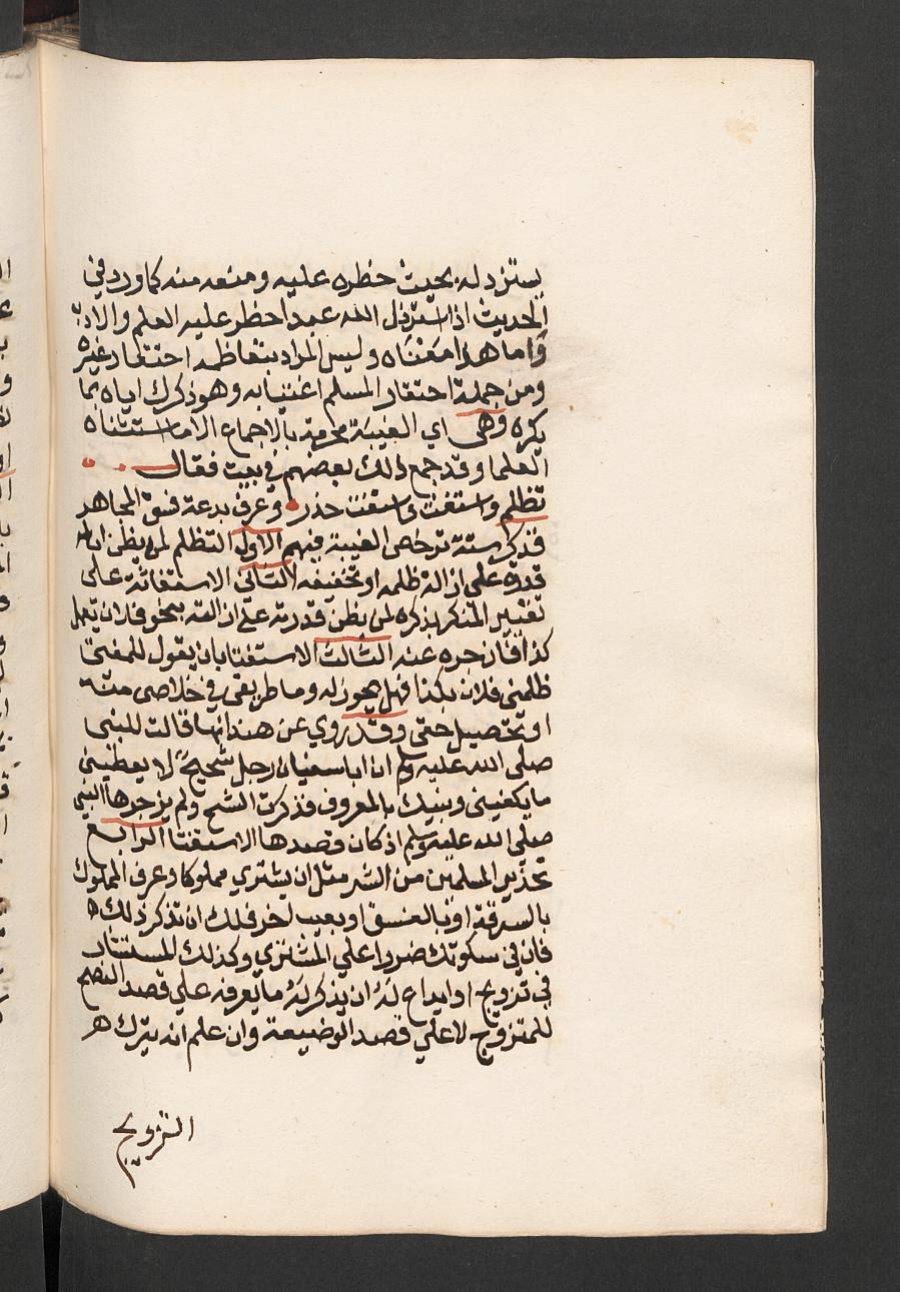 يسترذله بحيث حظره عليه ومنعه منه كما ورد في
الحديث اذا استرذل الله عبدا حظر عليه العلم والادب
واما هذا معناه وليس المراد بتعاظمه احتقاد غيره
ومن جملة احتقار المسلم اغتيابه وهو ذكرك اياه بما
يكره وهي اي الغيبة محرمة بالاجماع الا ما استثناه
العلما وقد جمع ذلك بعضهم في بيت فقال
تظلم واستغث واستفت حذر وعرف بدعة فسق المجاهر
فذكر ستة ترخص الغيبة فيهم الاول التظلم لمن يظن ان له
قدرة علي ازالة ظلمه او تخفيفه الثاني الاستغاثة علي
تغيير المنكر بذكره لمن يظن قدرته علي ازالته بنحو فلان يعمل
كذا فازجره عنه الثالث الاستفتا بان يقول للمفتي
ظلمني فلان بكذا فهل يجوز له وما طريقي في خلاصي منه
او تحصيل حقي وقد روي عن هند انها قالت للنبي
صلي الله عليه وسلم ان ابا سفيان رجل شحيح لا يعطيني
ما يكفيني وبنيك بالمعروف فذكرت الشح ولم يزجرها النبي
صلي الله عليه وسلم اذ كان قصدها الاستفتا الرابع
تحذير المسلمين من الشر مثل ان يشتري مملوكا وعرف المملوك
بالسرقة او بالفسق او بعيب اخر فلك ان تذكر ذلك ه
فان في سكوتك ضررا علي المشتري وكذلك المستشار
في تزويج او ايداع له ان يذكر له ما يعرفه علي قصد النصح
للمتزوج لا علي قصد الوضيعة وان علم انه يترك ه
التزويج